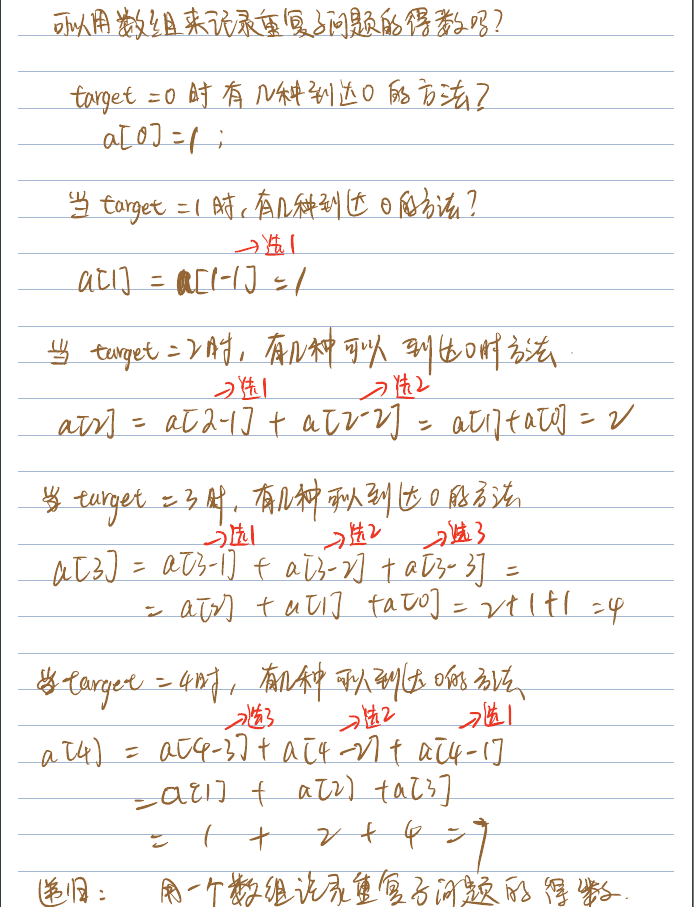 可以用数组来记录重复子问题的得数吗?
target = 0 时有几种到达0的方法?
a[0] = 1 ;
当 target = 1 时,有几种到达0的方法?
→选1
a[1] = a[1-1] = 1
当 target = 2时, 有几种可以到达0时方法.
→选1 →选2
a[2] = a[2-1] + a[2-2] = a[1]+a[0] = 2
当 target = 3时, 有几种可以到达0的方法
→选1 →选2 →选3
a[3] = a[3-1] + a[3-2] + a[3-3] =
= a[2] + a[1] + a[0] = 2+1+1 = 4
当 target = 4时, 有几种可以到达0的方法
→选3 →选2 →选1
a[4] = a[4-3] + a[4-2] + a[4-1]
= a[1] + a[2] + a[3]
= 1 + 2 + 4 = 7
递归: 用一个数组记录重复子问题的得数.